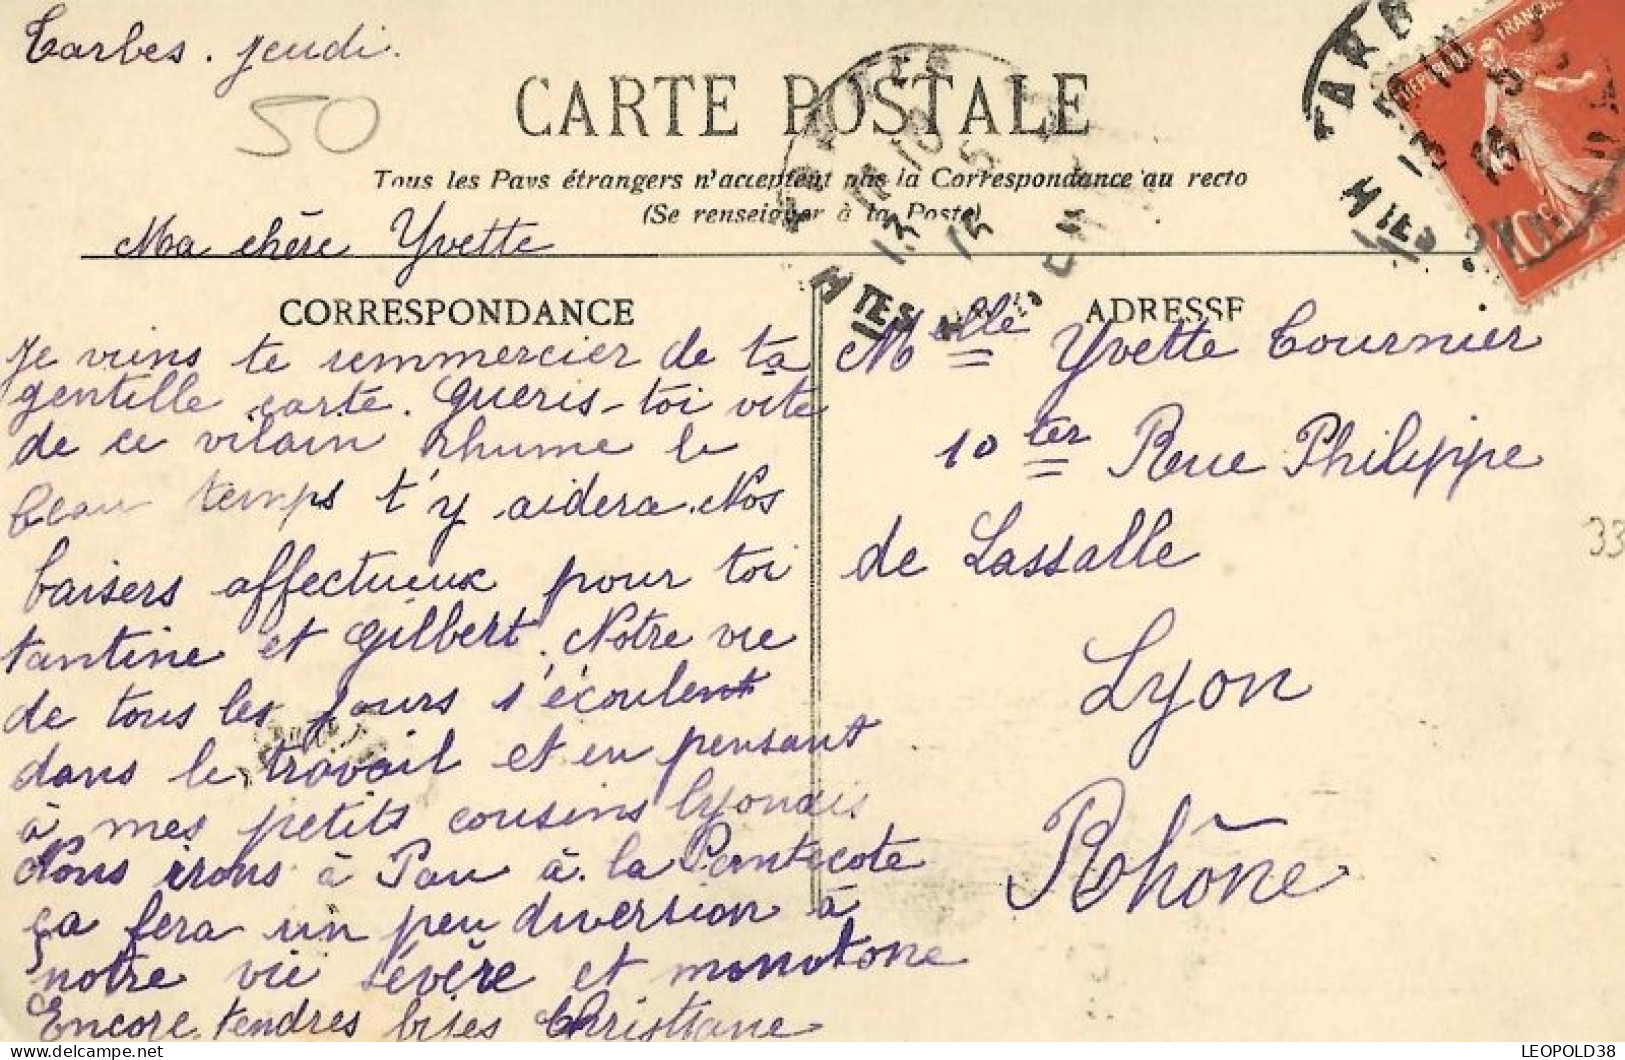 Tarbes. jeudi.
50
CARTE POSTALE
Tous les Pays étrangers n'acceptent pas la Correspondance au recto
(Se renseigner à la Poste)
Ma chère Yvette
CORRESPONDANCE
Je viens te remmercier de ta
gentille carte. Gueris-toi vite
de ce vilain rhume le
beau temps t'y aidera. Nos
baisers affectueux pour toi
tantine et Gilbert. Notre vie
de tous les jours s'écoulent
dans le travail et en pensant
à mes petits cousins lyonais
Nous irons à Pau à la Pentecote
ça fera un peu diversion à
notre vie sévère et monotone
Encore tendres bises Christiane
ADRESSE
Melle Yvette Tournier
10 ter Rue Philippe
de Lassalle
Lyon
Rhône
REPUBLIQUE FRANÇAISE
10
TARB
13
15
33
LEOPOLD38